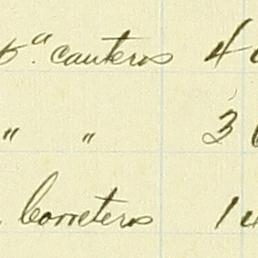 pª. canteros 4
" " 3
barreteros 1